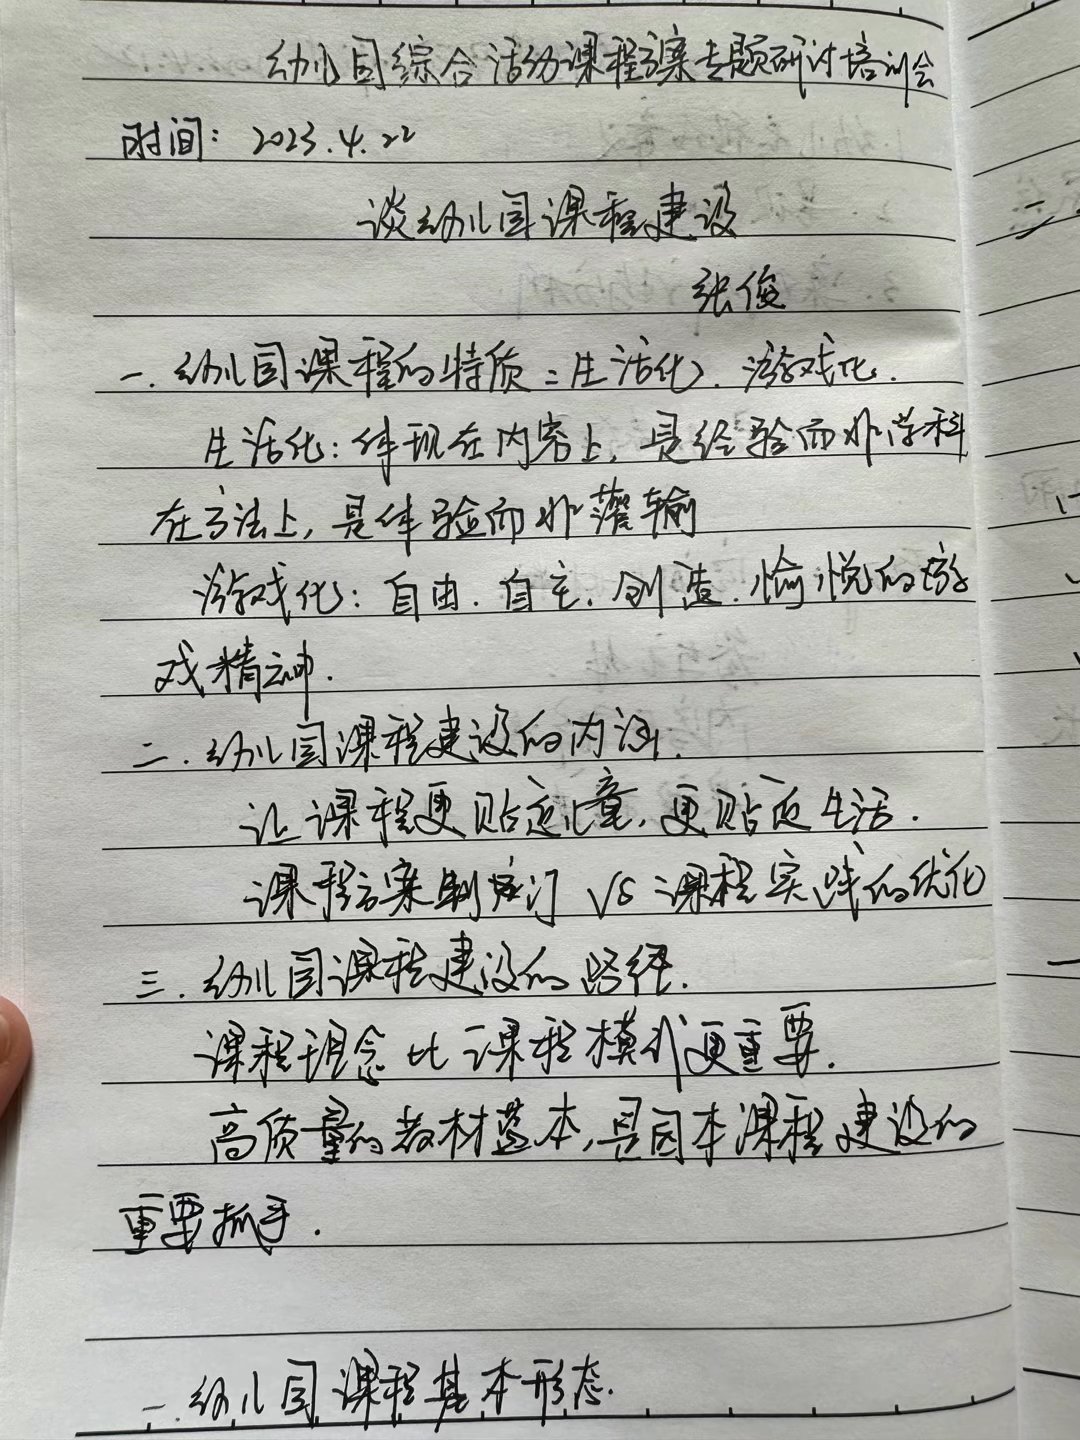 幼儿园综合活动课程方案专题研讨培训会
时间：2023.4.22
谈幼儿园课程建设
张俊
一.幼儿园课程的特质：生活化.游戏化.
生活化：体现在内容上,是经验而非学科
在方法上,是体验而非灌输
游戏化：自由.自主.创造.愉悦的游
戏精神.
二.幼儿园课程建设的内涵.
让课程更贴近儿童,更贴近生活.
课程方案制定 VS 课程实践的优化
三.幼儿园课程建设的路径.
课程理念比课程模式更重要.
高质量的教材蓝本,是园本课程建设的
重要抓手.
一.幼儿园课程基本形态.